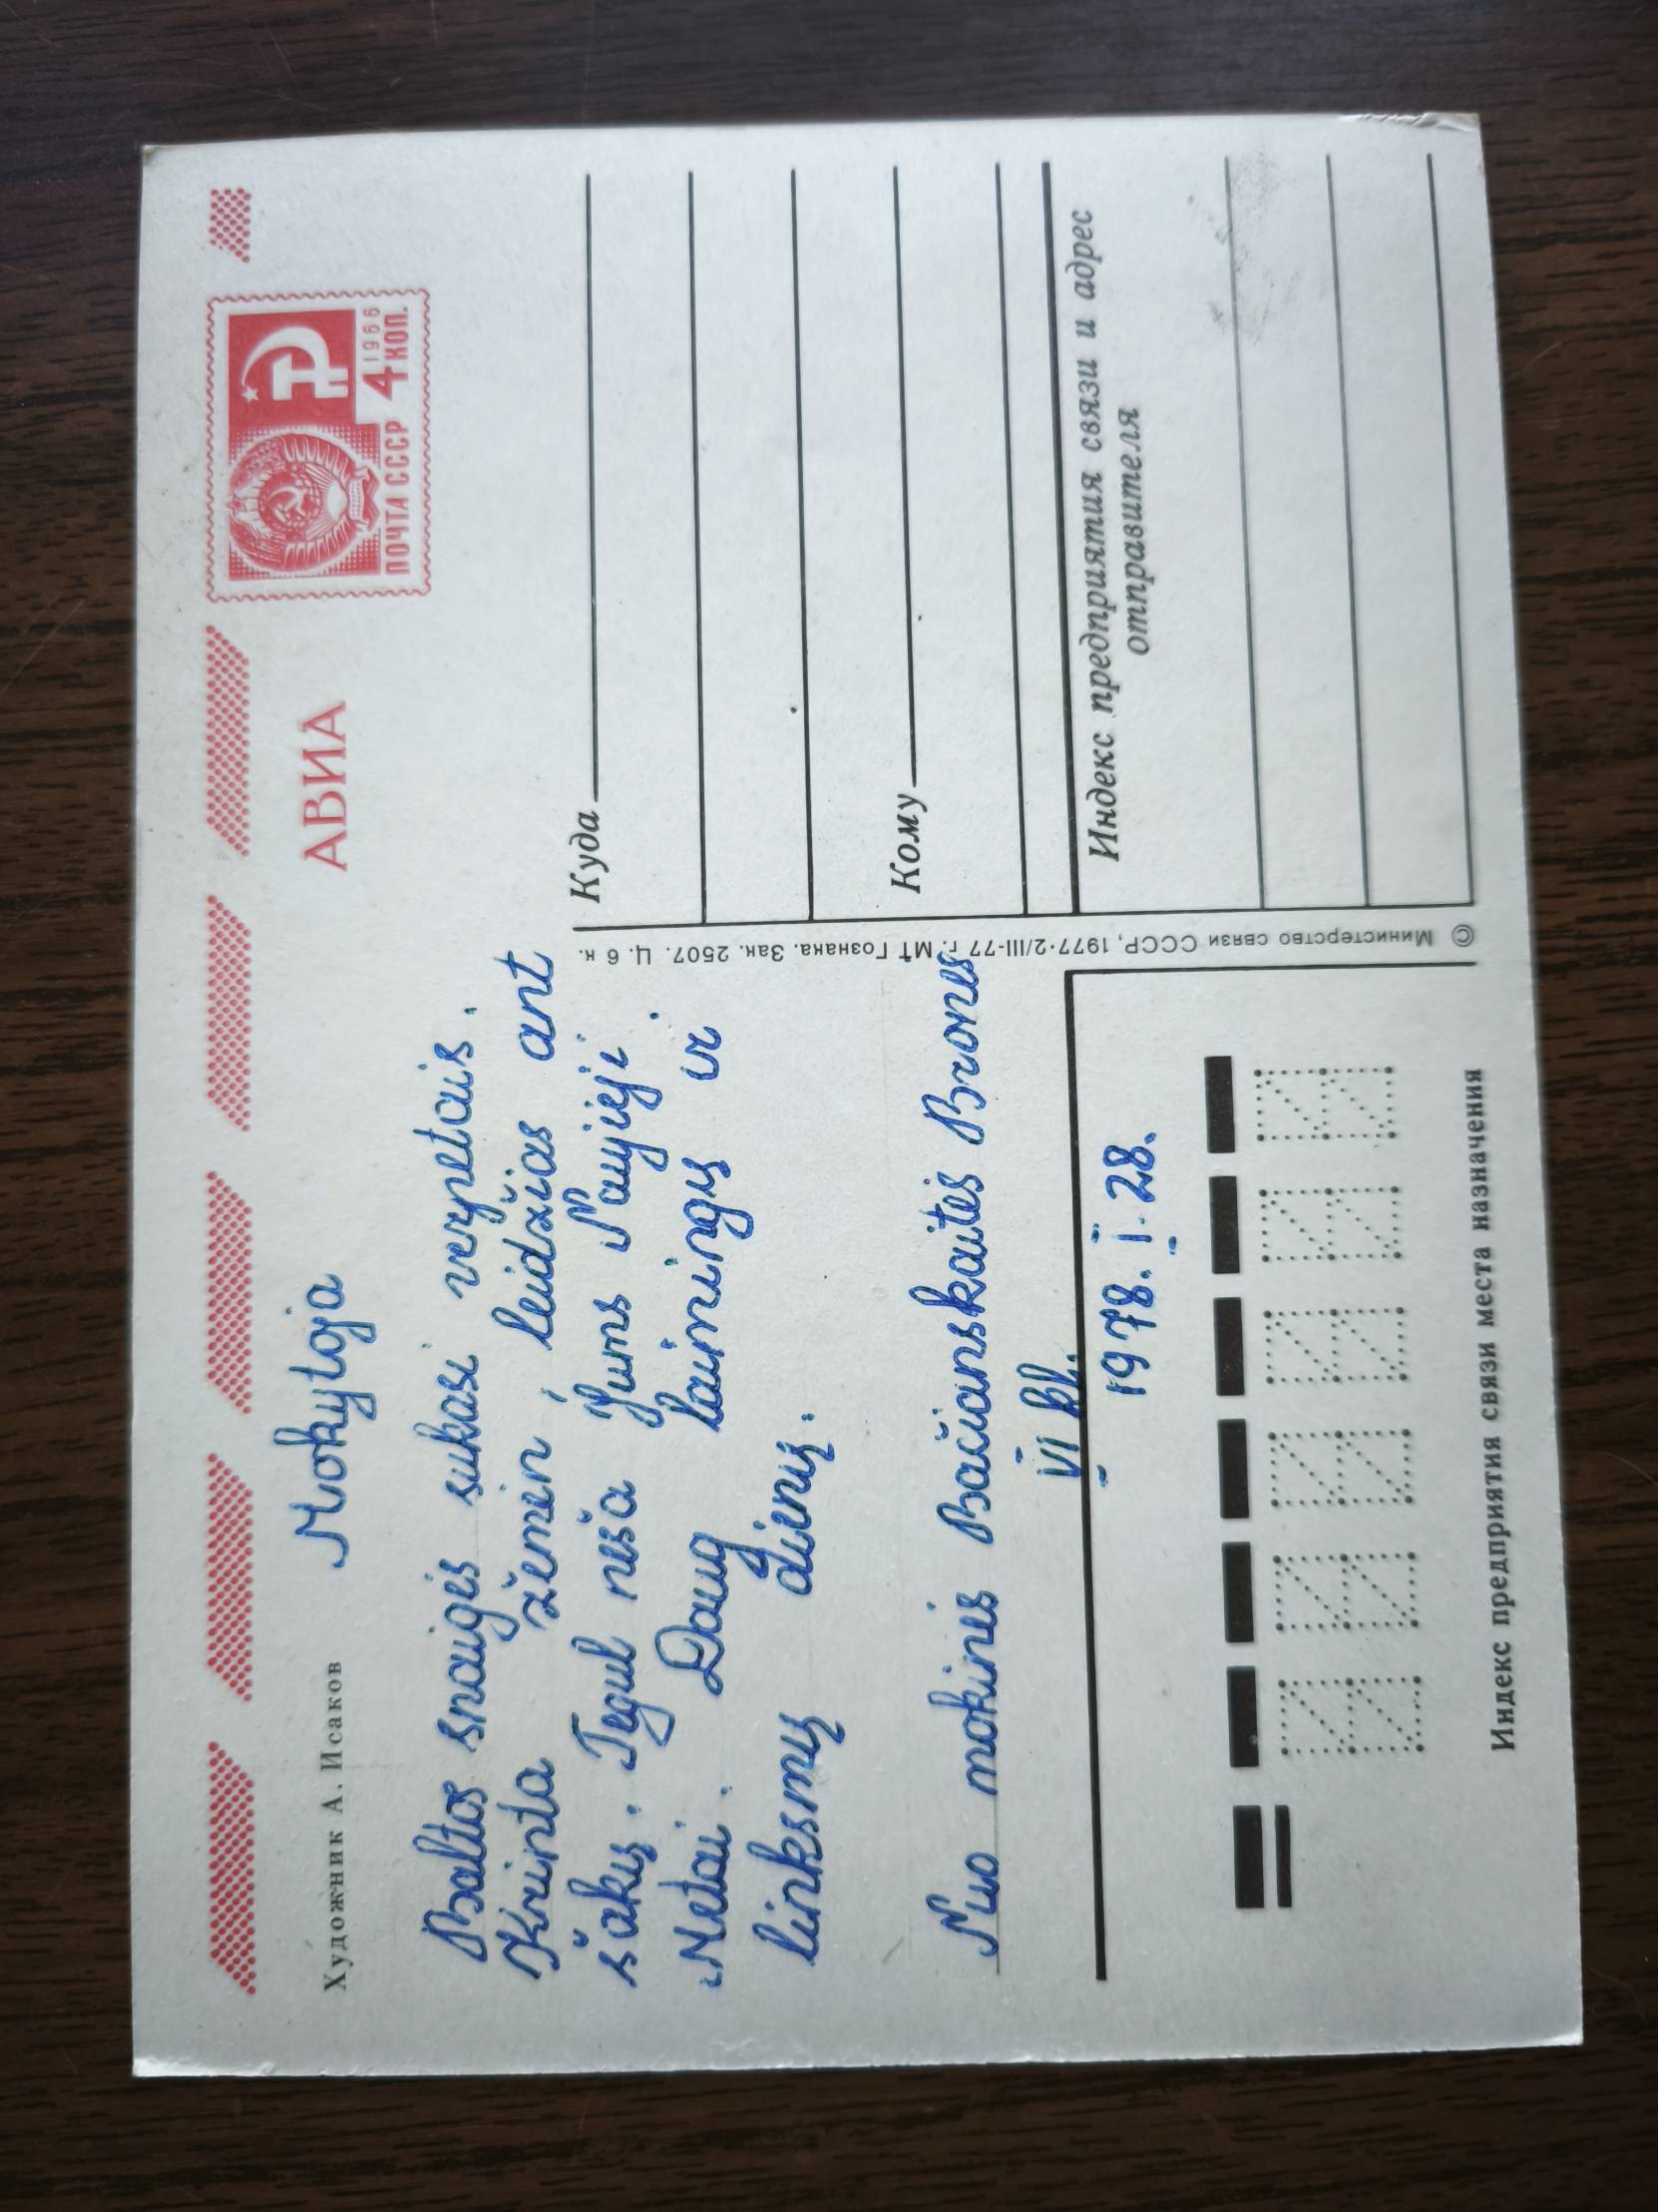 Художник А. Исаков
АВИА
ПОЧТА СССР 4 КОП.
1966
Mokytoja
Baltos snaigės sukasi verpetais.
Krinta žemėn, leidžias ant
šakų. Tegul neša Jums Naujieji
Metai. Daug laimingų ir
linksmų dienų.
Nuo mokinės Bačianskaitės Bronės
VI kl.
1978. I. 28.
Куда
Кому
Индекс предприятия связи и адрес
отправителя
© Министерство связи СССР, 1977·2/III-77 г. МТ Гознака. Зак. 2507. Ц. 6 к.
Индекс предприятия связи места назначения